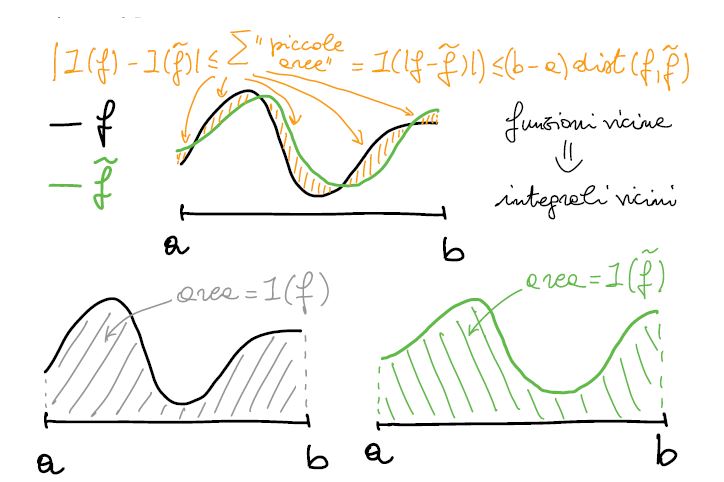 |I(f) - I(f̃)| ≤ ∑ "piccole aree" = I(|f-f̃|) ≤ (b-a) dist(f, f̃)
— f
— f̃
funzioni vicine
⇓
integrali vicini
a b
area = I(f)
area = I(f̃)
a b
a b